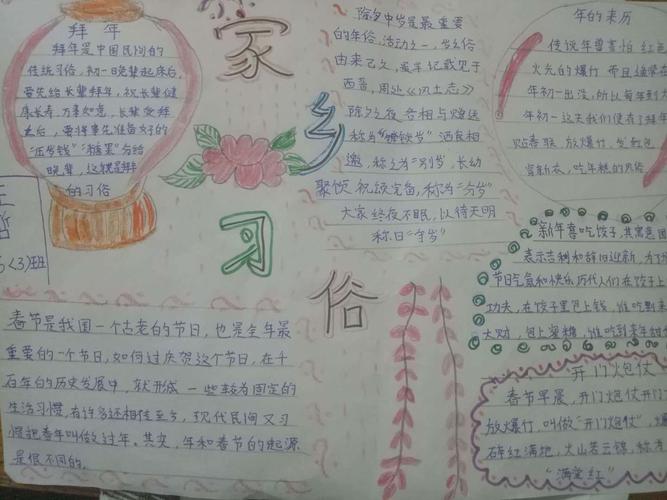 家
乡
习
俗
拜年
拜年是中国民间的
传统习俗，初一晚辈起床后，
要先给长辈拜年，祝长辈健
康长寿，万事如意，长辈受拜
之后，要将事先准备好的
"压岁钱""糖果"分给
晚辈，这就是拜
的习俗
(3)班
春节是我国一个古老的节日，也是全年最
重要的一个节日，如何过庆贺这个节日，在千
百年的历史发展中，就形成一些较为固定的
生活习惯，有许多还相传至今，现代民间又习
惯把春年叫做过年。其实，年和春节的起源
是很不同的。
除夕中岁是最重要
的年俗活动之一，岁俗
由来已久，最早记载见于
西晋，周处《风土志》
除夕之夜各相与赠送
称为"馈岁"酒食相
邀，称之为"别岁"，长幼
聚饮祝颂完备，称为"分岁"
大家终夜不眠，以待天明
称曰"守岁"
年的来历
传说年兽害怕红色
火光的爆竹而且通常在
年初一出没，所以每年到大
年初一这天我们便有了拜年
贴春联，放爆竹，发红包
穿新衣，吃年糕的风俗
新年喜吃饺子，其寓意团
表示吉利和辞旧迎新，为了
节日气氛和快乐历代人们在饺子
功夫，在饺子里包上钱，谁吃到来
大财，包上蜜糖，谁吃到来年甜
开门炮仗
春节早晨，开门炮仗开门
放爆竹，叫做"开门炮仗"，爆
碎红满地，火山若云锦，称为
"满堂红"